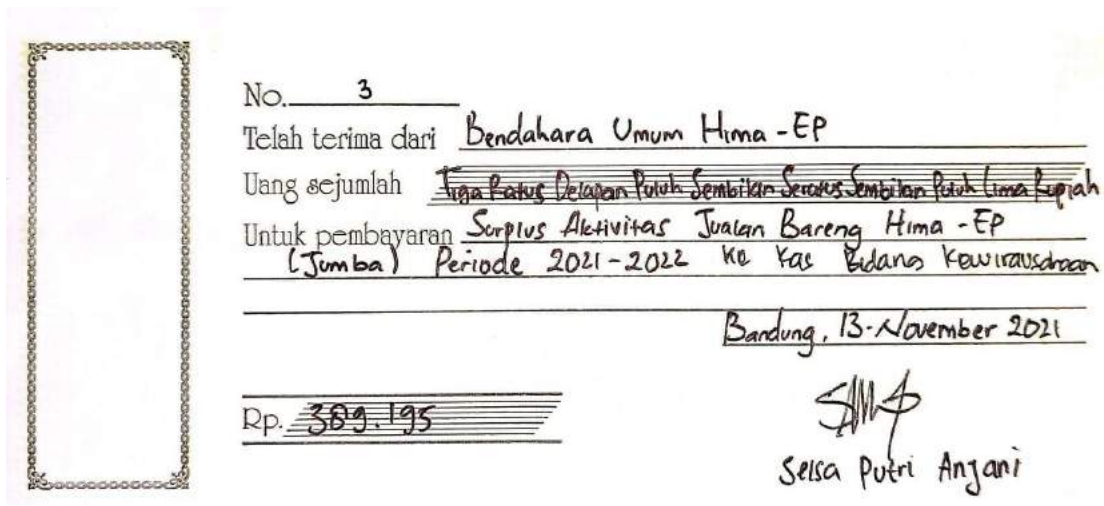 No. 3
Telah terima dari Bendahara Umum Hima - EP
Uang sejumlah Tiga Ratus Delapan Puluh Sembilan Seratus Sembilan Puluh Lima Rupiah
Untuk pembayaran Surplus Aktivitas Jualan Bareng Hima - EP
(Jumba) Periode 2021 - 2022 Ke Kas Bidang Kewirausahaan
Bandung, 13 - November 2021
Rp. 389.195
Selsa Putri Anjani